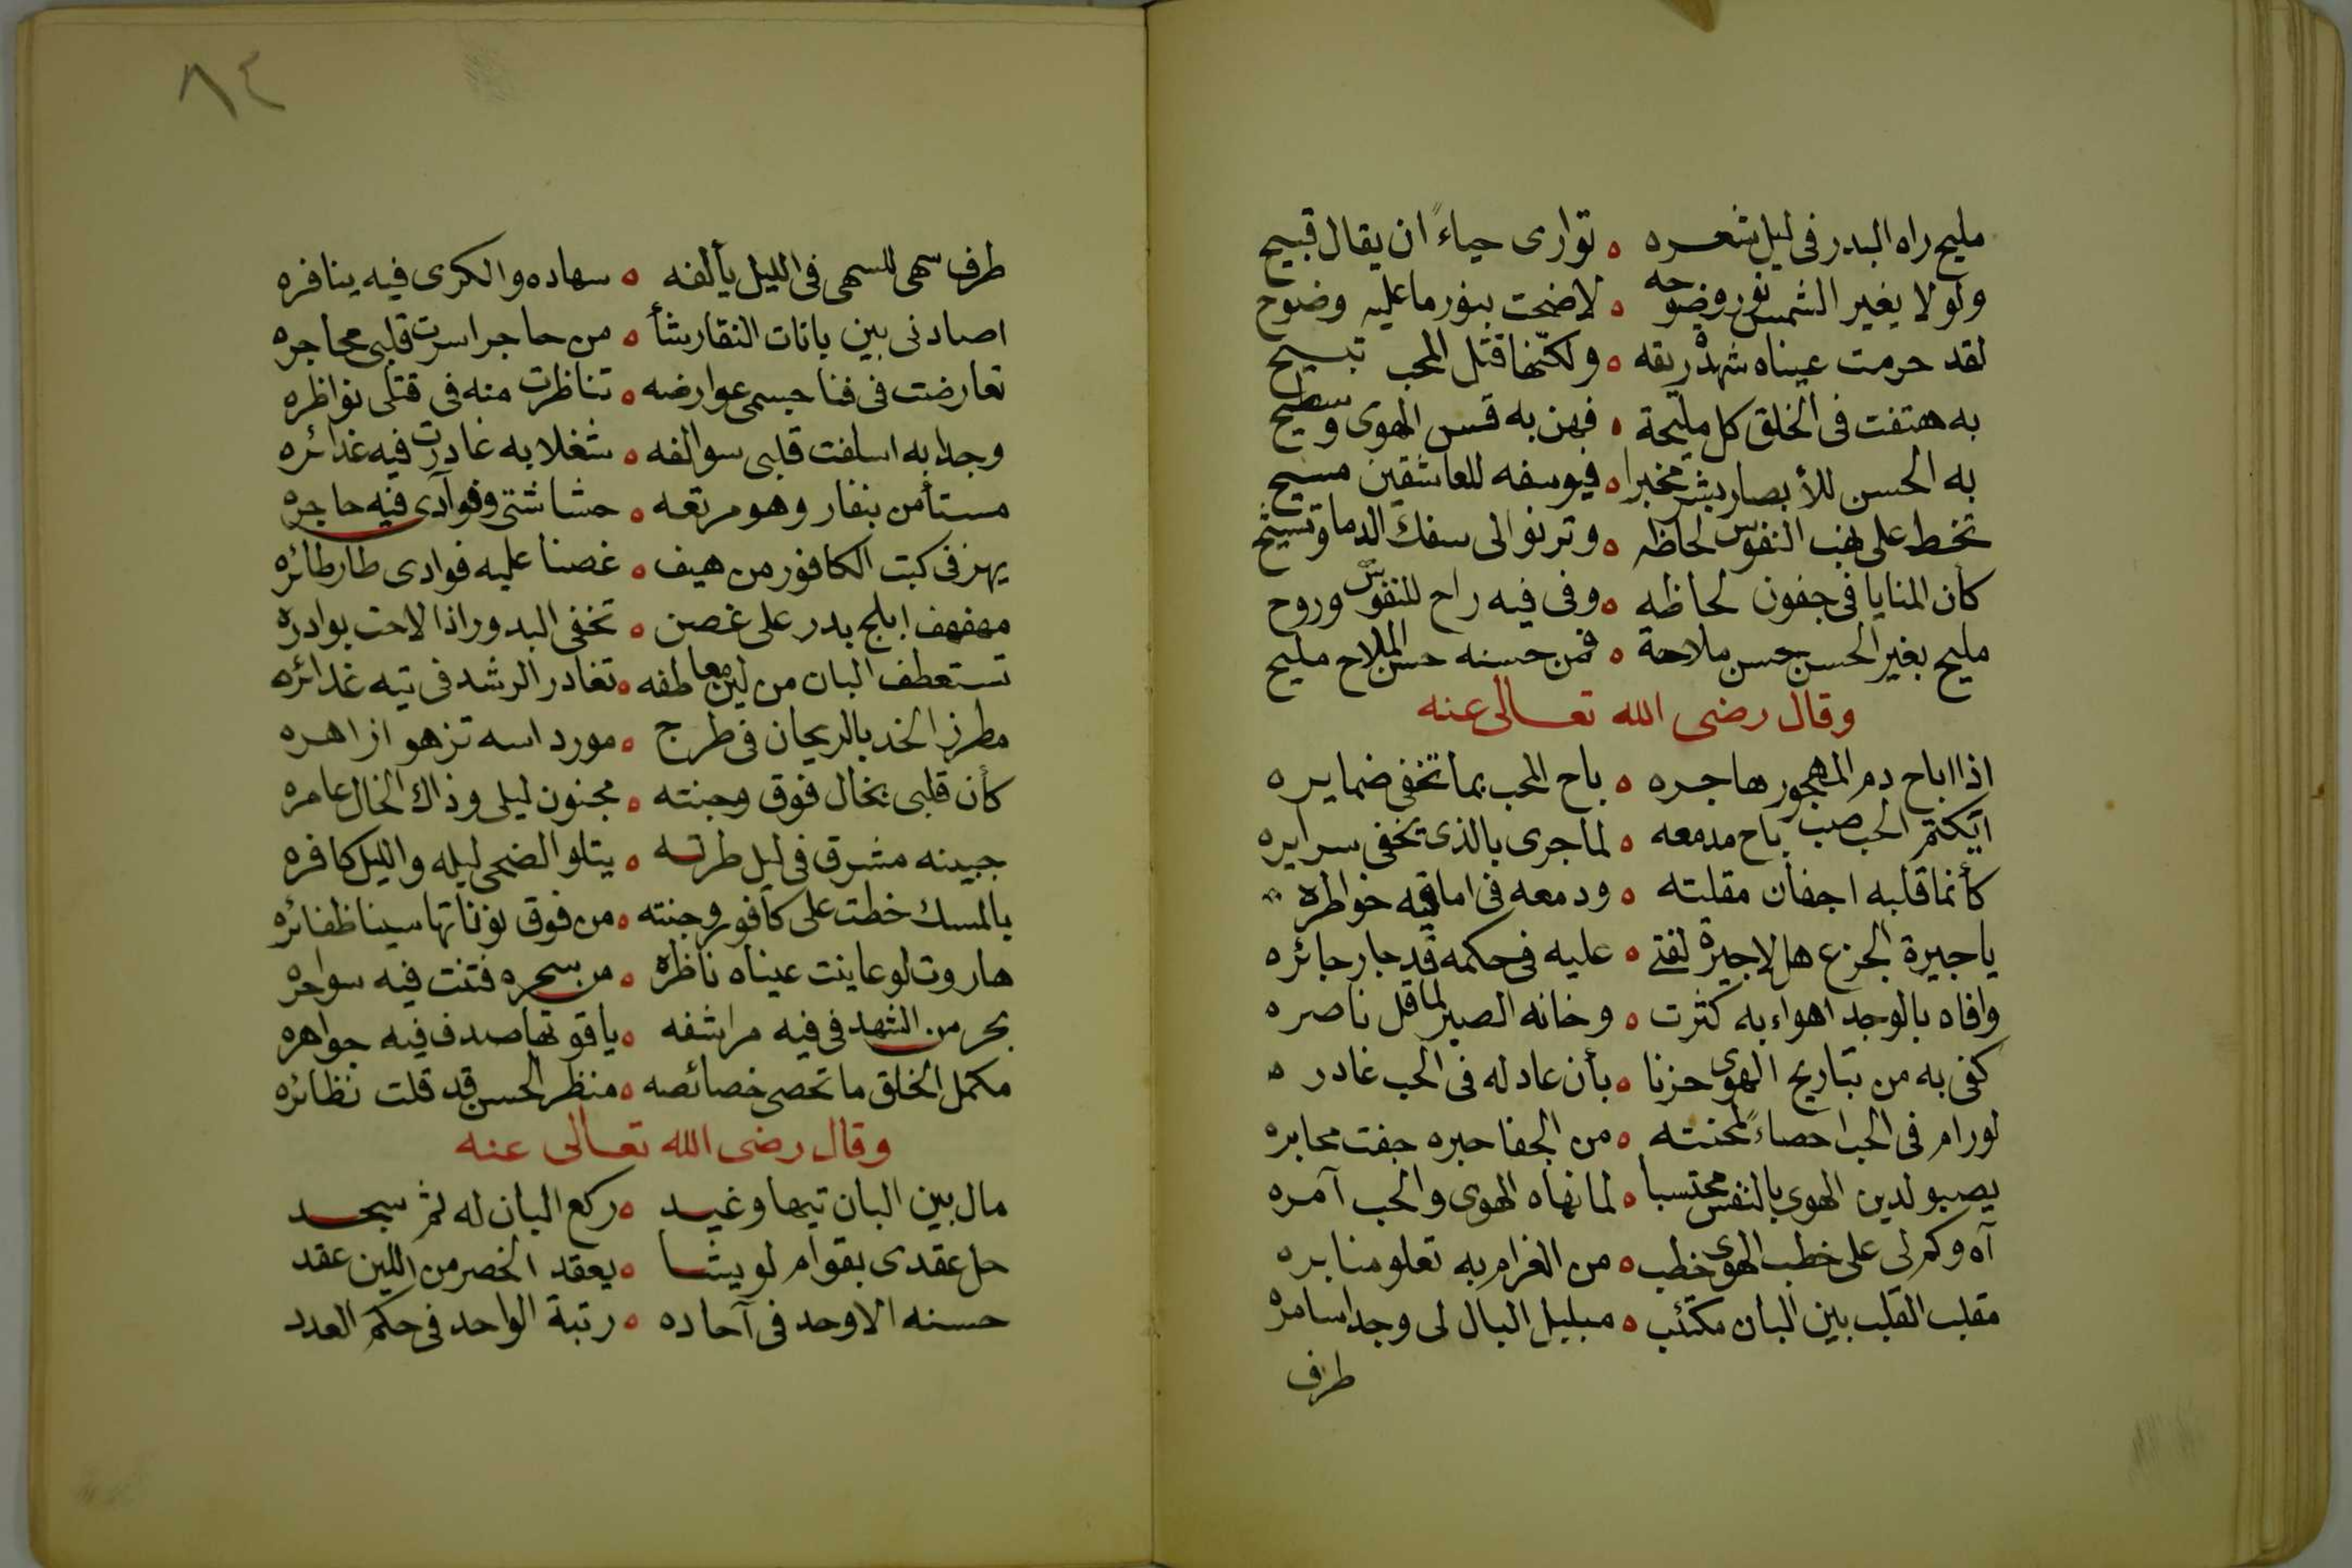 مليح راه البدر فى ليل شعره ه توارى حياءً ان يقال قبيح
ولولا يغير الشمس نور وضوحه ه لاضحت بنور ما عليه وضوح
لقد حرمت عيناه شهد ريقه ه ولكنها قتل المحب تبيح
به هتفت فى الخلق كل مليحة ه فهن به قس الهوى وسطيح
به الحسن للأبصار بشر مخبرا ه فيوسفه للعاشقين مسيح
تخط على نهب النفوس لحاظه ه وترنو الى سفك الدما وتسيح
كأن المنايا فى جفون لحاظه ه وفى فيه راح للنفوس وروح
مليح بغير الحسن حسن ملاحة ه فمن حسنه حسن الملاح مليح
وقال رضى الله تعالى عنه
اذا اباح دم المهجور هاجره ه باح المحب بما تخفى ضمايره
ايكتم الحب صب باح مدمعه ه لما جرى بالذى تخفى سرايره
كأنما قلبه اجفان مقلته ه ودمعه فى اماقيه خواطره
يا جيرة الجزع هل لا جيرة لفتى ه عليه فى حكمه قد جار جائره
وافاه بالوجد اهواء به كثرت ه وخانه الصبر لما قل ناصره
كفى به من تباريح الهوى حزنا ه بأن عاد له فى الحب غادره
لو رام فى الحب احصاءً لمحنته ه من الجفا حبره جفت محابره
يصبو لدين الهوى بالنفس محتسبا ه لما نهاه الهوى والحب آمره
آه وكم لى على خطب الهوى خطب ه من الغرام به تعلو منابره
مقلب القلب بين البان مكتئب ه مبلبل البال لى وجدا سامره
طرف
٨٤
طرف سهى للسهى فى الليل يألفه ه سهاده والكرى فيه ينافره
اصادنى بين بانات النقا رشأ ه من حاجر اسرت قلبى محاجره
تعارضت فى فنا جسمى عوارضه ه تناظرت منه فى قتلى نواظره
وجدا به اسلفت قلبى سوالفه ه شغلا به غادرت فيه غدائره
مستأمن بنفار وهو مرتعه ه حشاشتى وفوآدى فيه حاجره
يهز فى كبت الكافور من هيف ه غصنا عليه فوادى طار طائره
مهفهف ابلج بدر على غصن ه تخفى البدور اذا لاحت بوادره
تستعطف البان من لين معاطفه ه تغادر الرشد فى تيه غدائره
مطرز الخد بالريحان فى طرج ه مورد اسه تزهو ازاهره
كأن قلبى بخال فوق وجنته ه مجنون ليلى وذاك الخال عامره
جبينه مشرق فى ليل طرته ه يتلو الضحى ليله والليل كافره
بالمسك خطت على كافور وجنته ه من فوق نوناتها سينا ظفائره
هاروت لو عاينت عيناه ناظره ه من سحره فتنت فيه سواحره
بحر من الشهد فى فيه مراشفه ه ياقوتها صدف فيه جواهره
مكمل الخلق ما تحصى خصائصه ه منظر الحسن قد قلت نظائره
وقال رضى الله تعالى عنه
مال بين البان تيها وغيد ه ركع البان له ثم سجد
حل عقدى بقوام لو يشا ه يعقد الخصر من اللين عقد
حسنه الاوحد فى آحاده ه رتبة الواحد فى حكم العدد